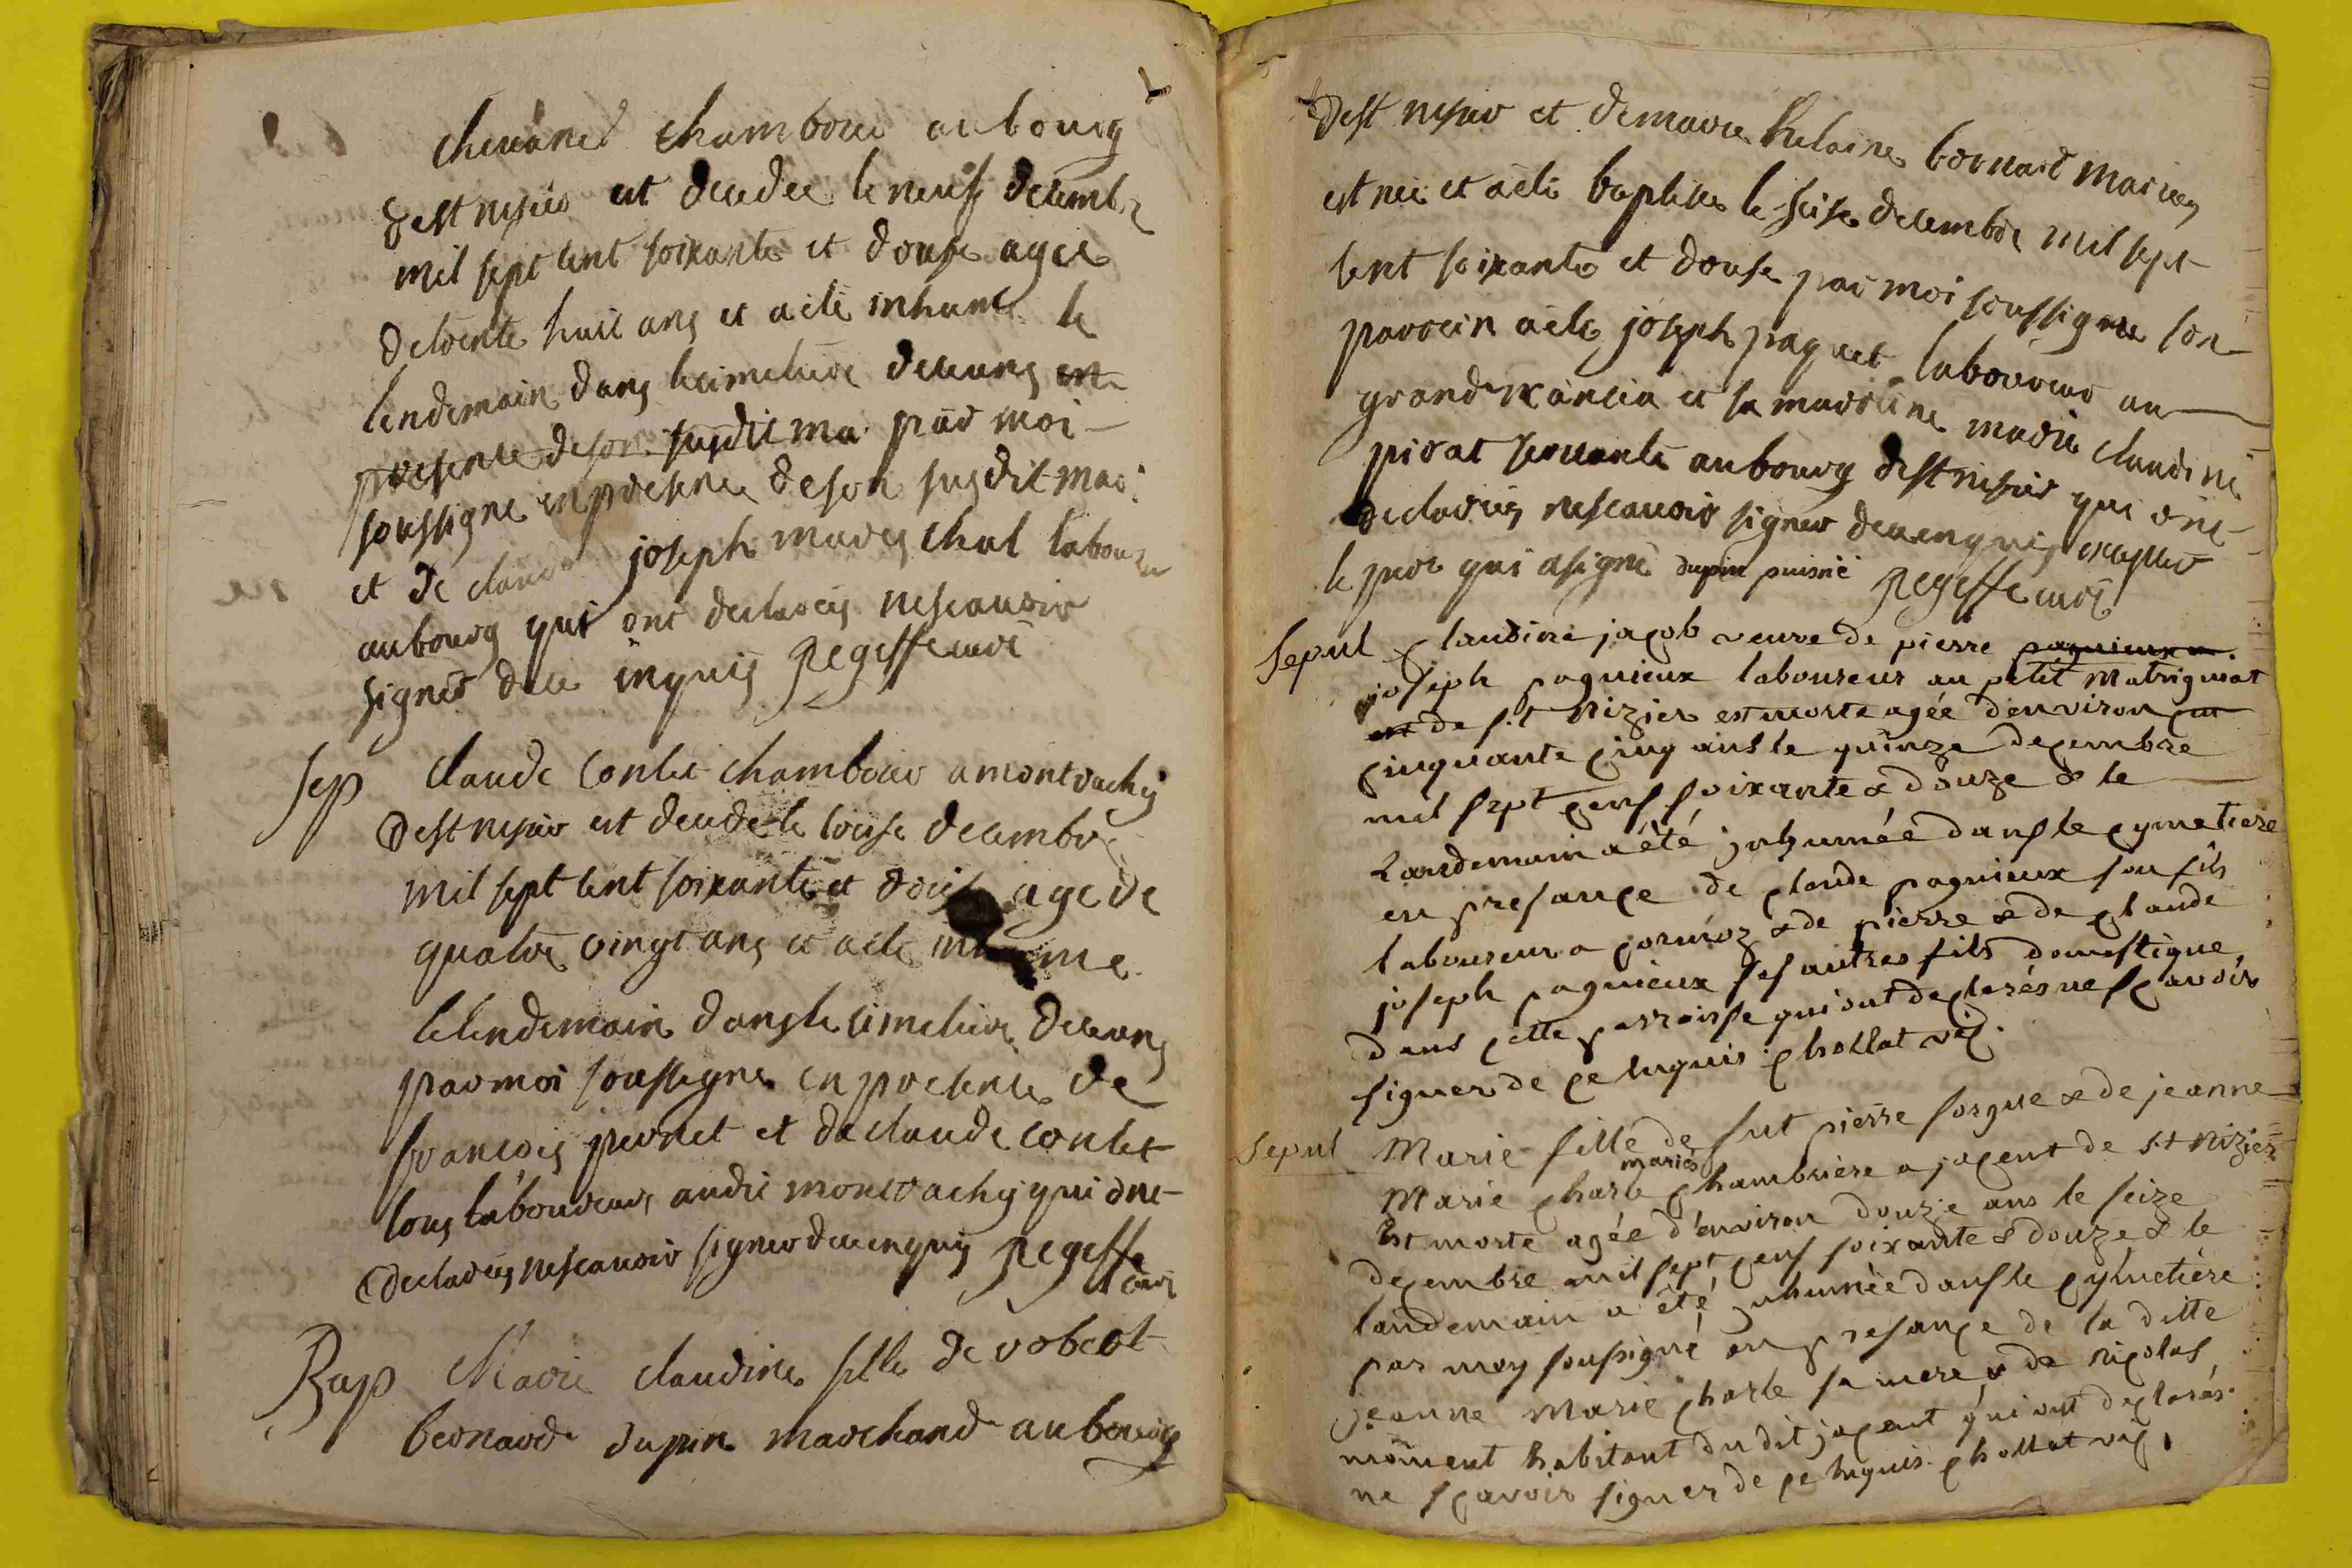 chambrier au bourg
de st nisier est decedee le neuf decembre
mil sept cent soixante et douse agee
de trente huit ans et a ete inhume le
lendemain dans le cimetiere ceans en
presence de son susdit ma par moi
soussigne en presence de son susdit mari
et de claude joseph mareschal laboureur
au bourg qui ont declares ne scavoir
signer de ce inquis Regeffe cure
sep claude contet chambrier a montrachy
de st nisier est decede le touse decembre
mil sept cent soixante et douse age de
quatre vingt ans et a ete inhume
le lendemain dans le cimetiere ceans
par moi soussigne en presence de
francois pernet et de claude contet
tous laboureurs audit montrachy qui ont
declares ne scavoir signer de ce enquis Regeffe
cure
Bap Marie claudine fille de robert
bernard dupin marchand au bourg
de st nisier et de marie helaine bernard maries
est nee et a ete baptisee le seise decembre mil sept
cent soixante et douse par moi soussigne son
parrein a ete joseph paquet laboureur au
grand et sa marreine marie claudine
pirat servante au bourg de st nisier qui ont
declares ne scavoir signer de ce enquis excepter
le pere qui a signe dupin puisné Regeffe cure
Sepul claudine jacob veuve de pierre paquieux
joseph paquieux laboureur au petit Matrignat
de s.t Nizier est morte agée denviron
cinquante cinq ans le quinze decembre
mil sept cens soixante & douze & le
Landemain a été inhumée dans le cymetiere
en presance de claude paquieux son fils
laboureur a cormoz & de pierre & de claude
joseph paquieux ses autres fils domestique
dans cette parroisse qui ont declarés ne scavoir
signer de ce enquis chollat vic.
Sepul Marie fille de fut pierre sorgue & de jeanne
mariés
Marie charle chambriere a jacent de st Nizier
Est morte agée d'environ douze ans le seize
decembre mil sept cens soixante & douze & le
landemain a été inhumée dans le cymetiere
par moy soussigné en presance de la ditte
jeanne Marie charle sa mere & de nicolas
moiment habitant du dit jacent qui ont declarés
ne scavoir signer de ce enquis chollat vic.